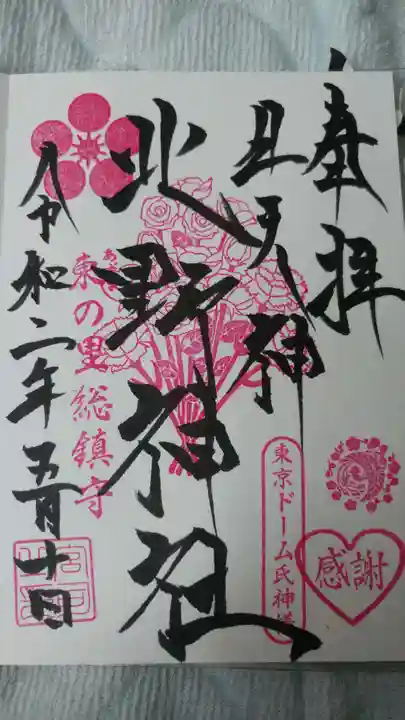 奉拝
牛天神
北野神社
令和二年五月十日
あずま
東の里総鎮守
東京ドーム氏神様
感謝